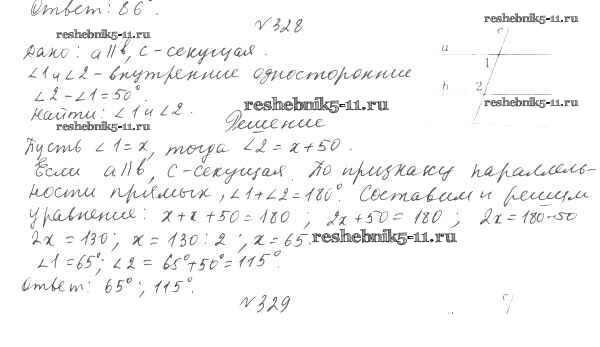 Ответ: 86°.
№328
reshebnik5-11.ru
reshebnik5-11.ru
Дано: a∥b, c-секущая.
∠1 и ∠2 - внутренние односторонние
∠2-∠1=50°.
Найти: ∠1 и ∠2.
reshebnik5-11.ru
reshebnik5-11.ru
Решение
c
a
1
b
2
reshebnik5-11.ru
Пусть ∠1=x, тогда ∠2=x+50.
Если a∥b, c-секущая. По признаку параллель-
ности прямых, ∠1+∠2=180°. Составим и решим
уравнение: x+x+50=180; 2x+50=180; 2x=180-50
2x=130; x=130:2; x=65.
reshebnik5-11.ru
∠1=65°; ∠2=65°+50°=115°.
Ответ: 65°; 115°.
№329